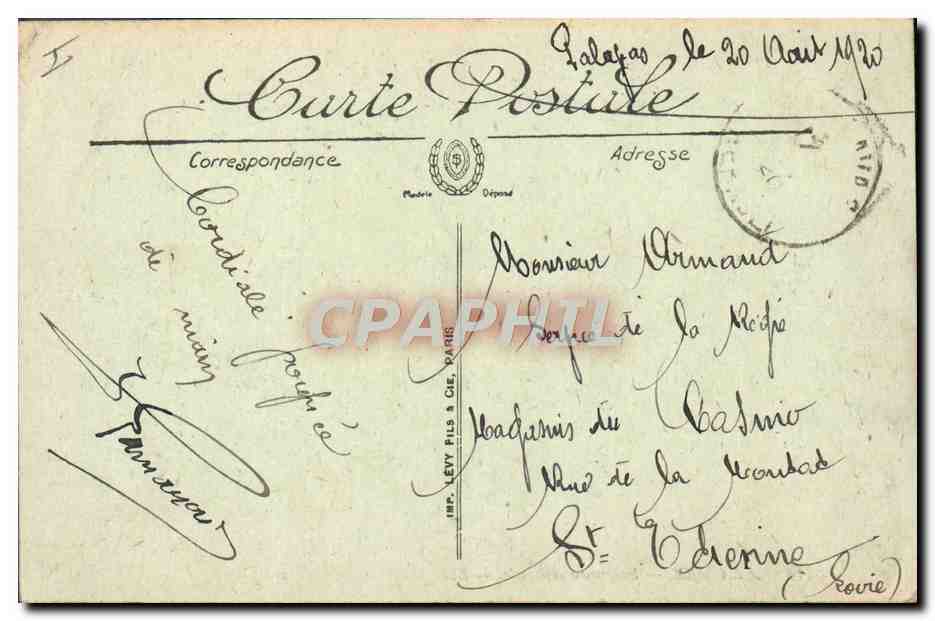 Palavas le 20 Août 1920
Carte Postale
Correspondance
Adresse
Modèle Déposé
Cordiale poignée
de main
IMP. LEVY FILS & CIE, PARIS
Monsieur Armand
Service de la Régie
Magasins du Casino
Rue de la Montat
St Etienne
(Loire)
CPAPHIL